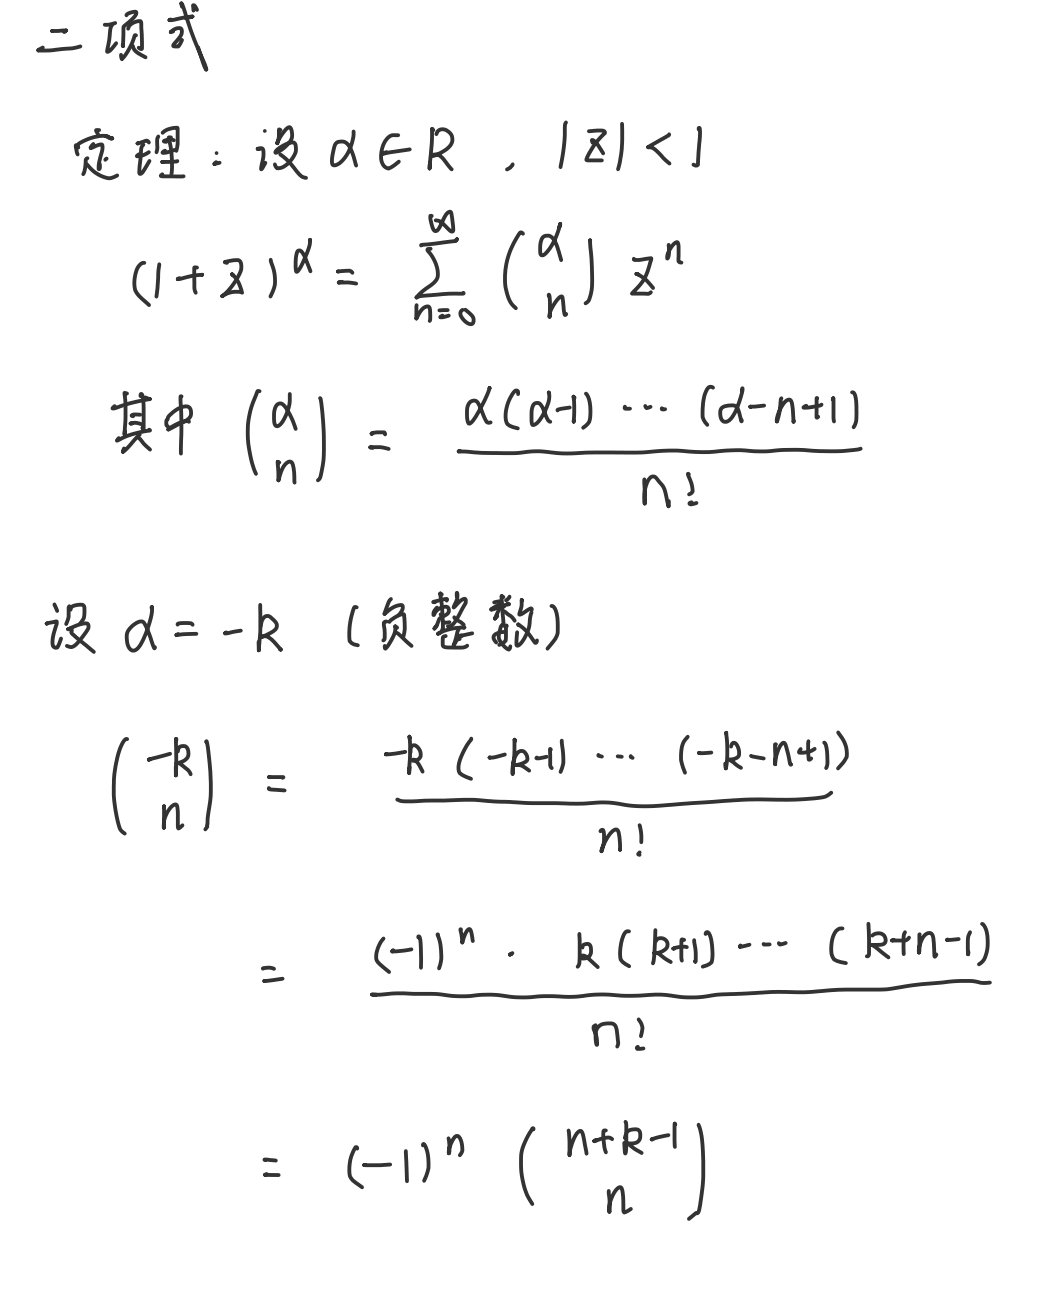 二项式
定理：设 α∈R , |z|<1
(1+z)^α = \sum_{n=0}^{∞} \binom{α}{n} z^n
其中 \binom{α}{n} = \frac{α(α-1) ··· (α-n+1)}{n!}
设 α = -k （负整数）
\binom{-k}{n} = \frac{-k (-k-1) ··· (-k-n+1)}{n!}
= \frac{(-1)^n · k(k+1) ··· (k+n-1)}{n!}
= (-1)^n \binom{n+k-1}{n}